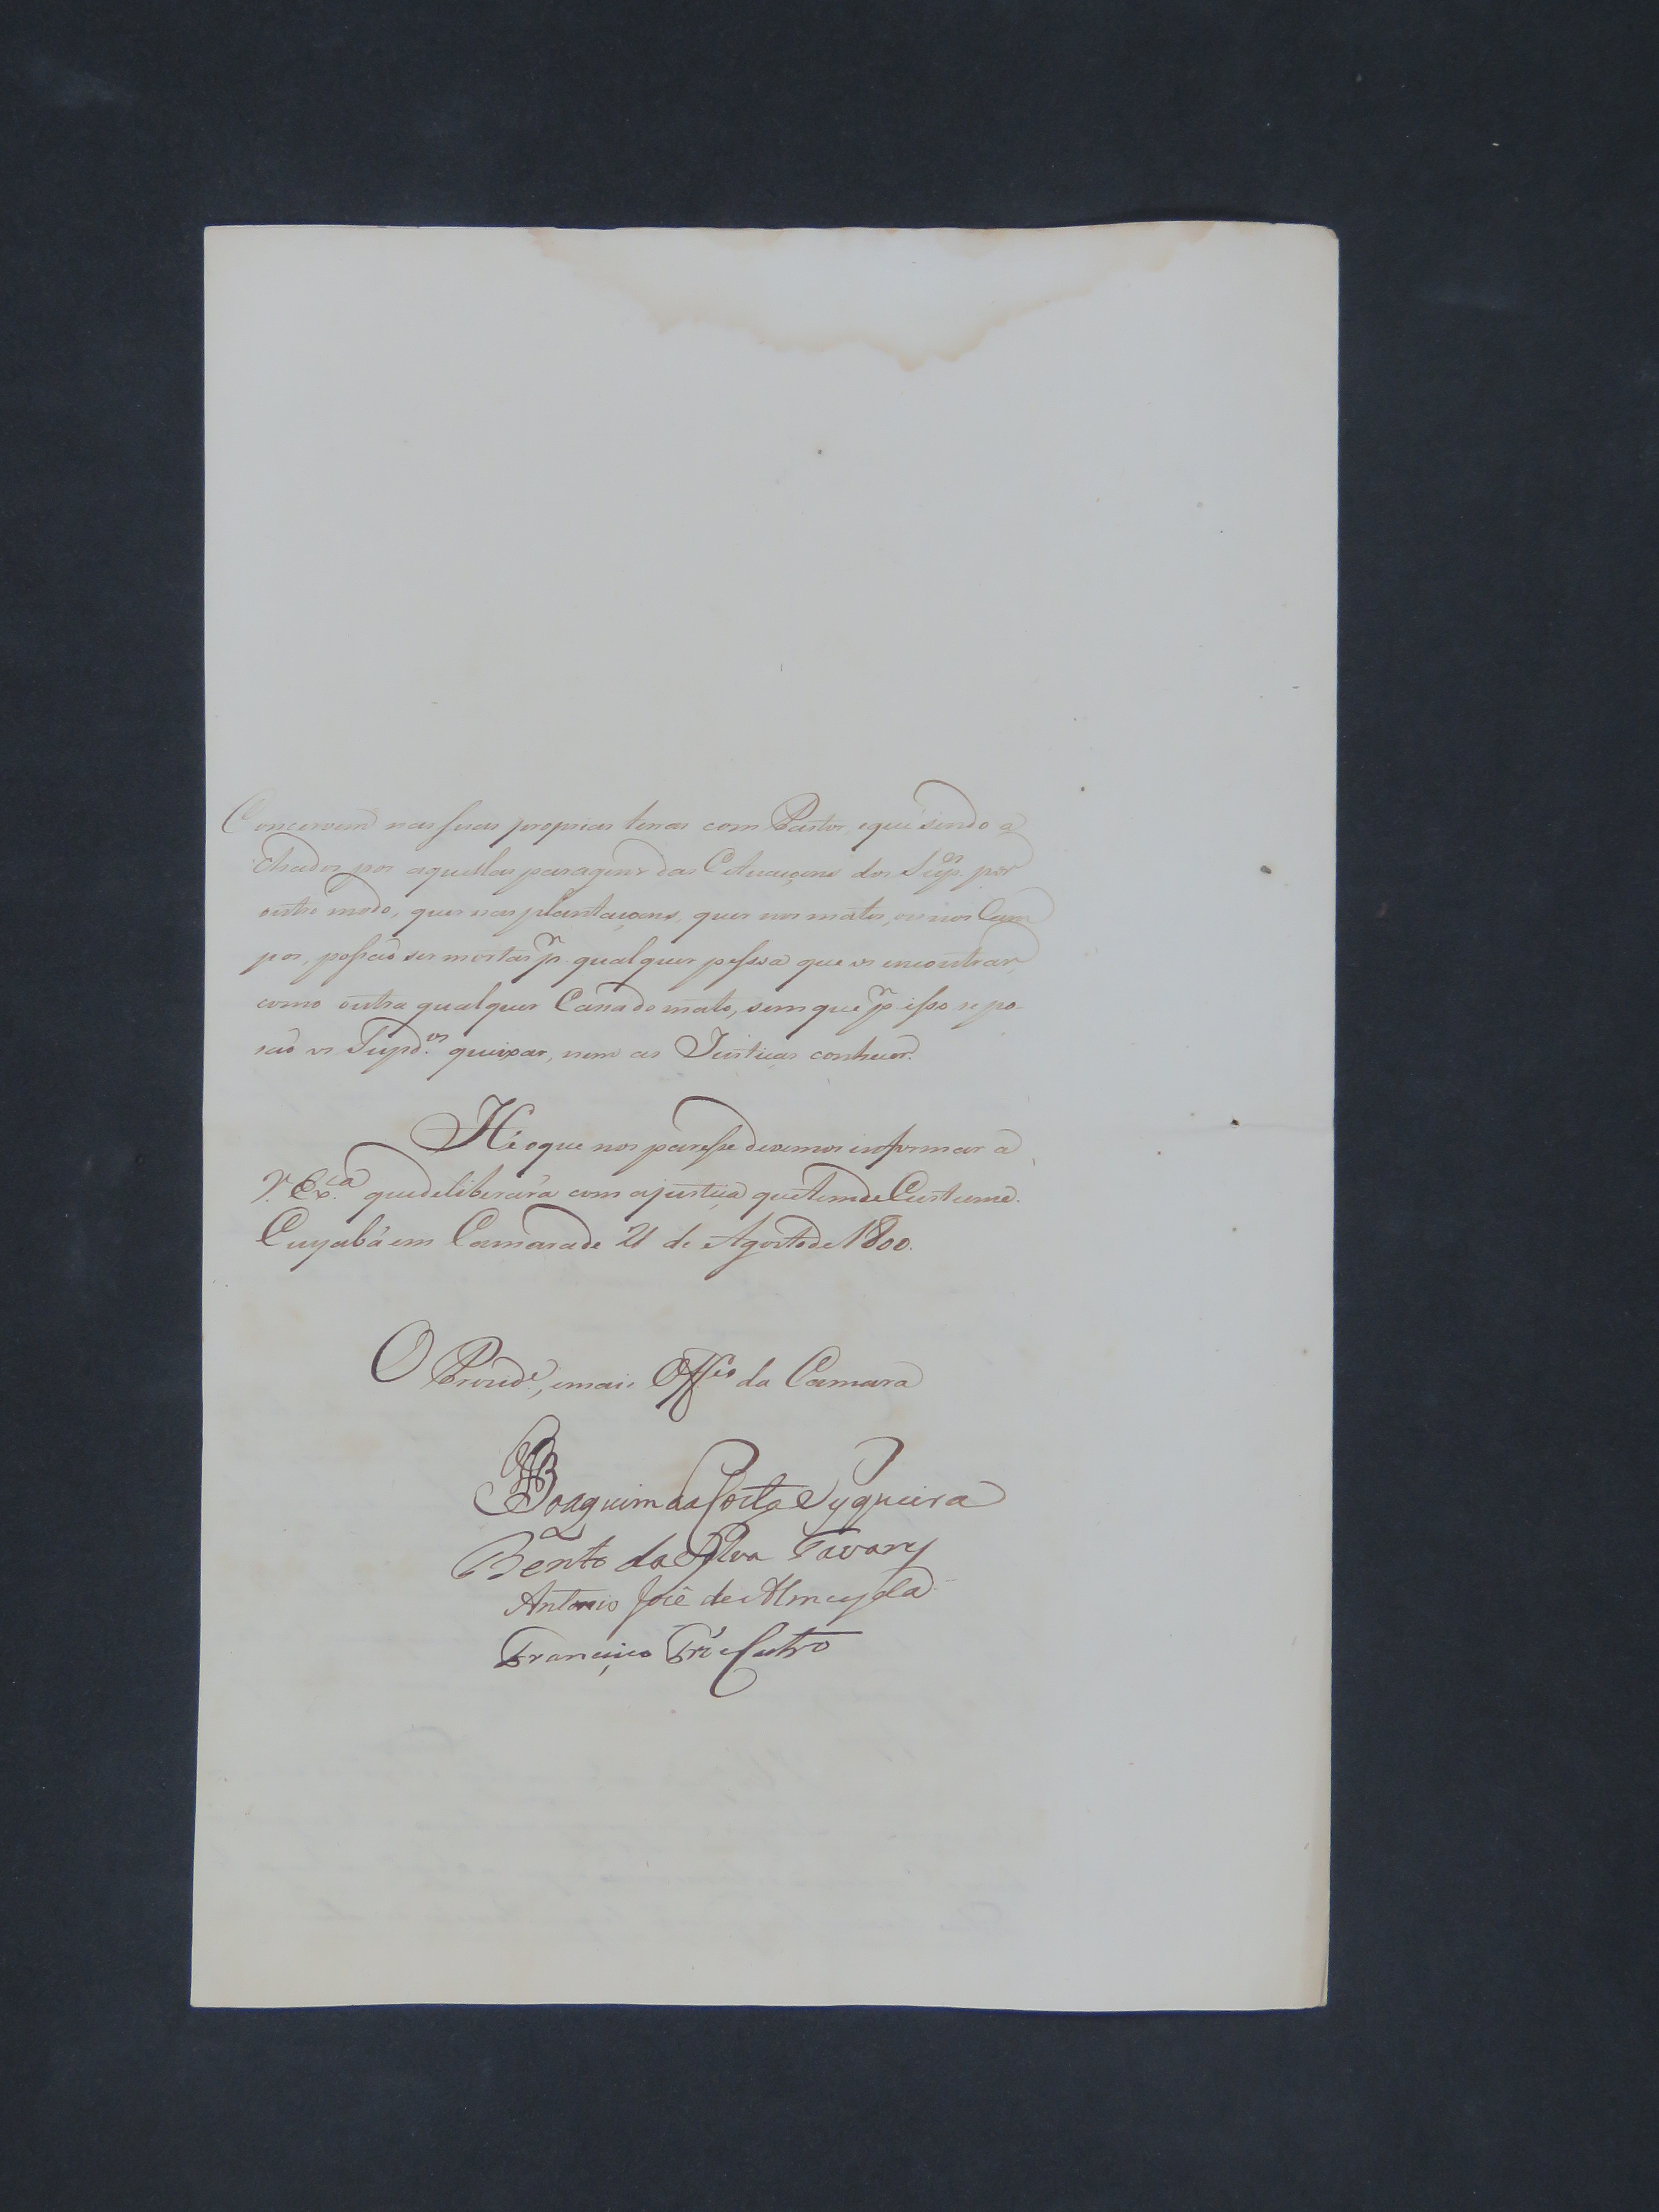 Concervem nas suas proprias terras com Pastor, e que sendo a
chados por aquellas paragens das Cituaçoens dos Sup.es por
outro modo, quer nas plantaçoens, quer nos matos, ou nos Cam
pos, possão ser mortas pr. qualquer pessoa que os encontrar,
como outra qualquer Cassa do mato, sem que pr. isso se po
são os Supd.os queixar, nem as Justiças conhecer.
Hé o que nos paresse devemos informar a
V. Ex.ca que deliberará com a justiça que tem de Custume.
Cuyabá em Camara de 21 de Agosto de 1800.
O Prezid.e, e mais Off.es da Camara
Joaquim da Costa Syqueira
Bento da Sylva Tavares
Antonio José de Almeyda
Francisco Castro